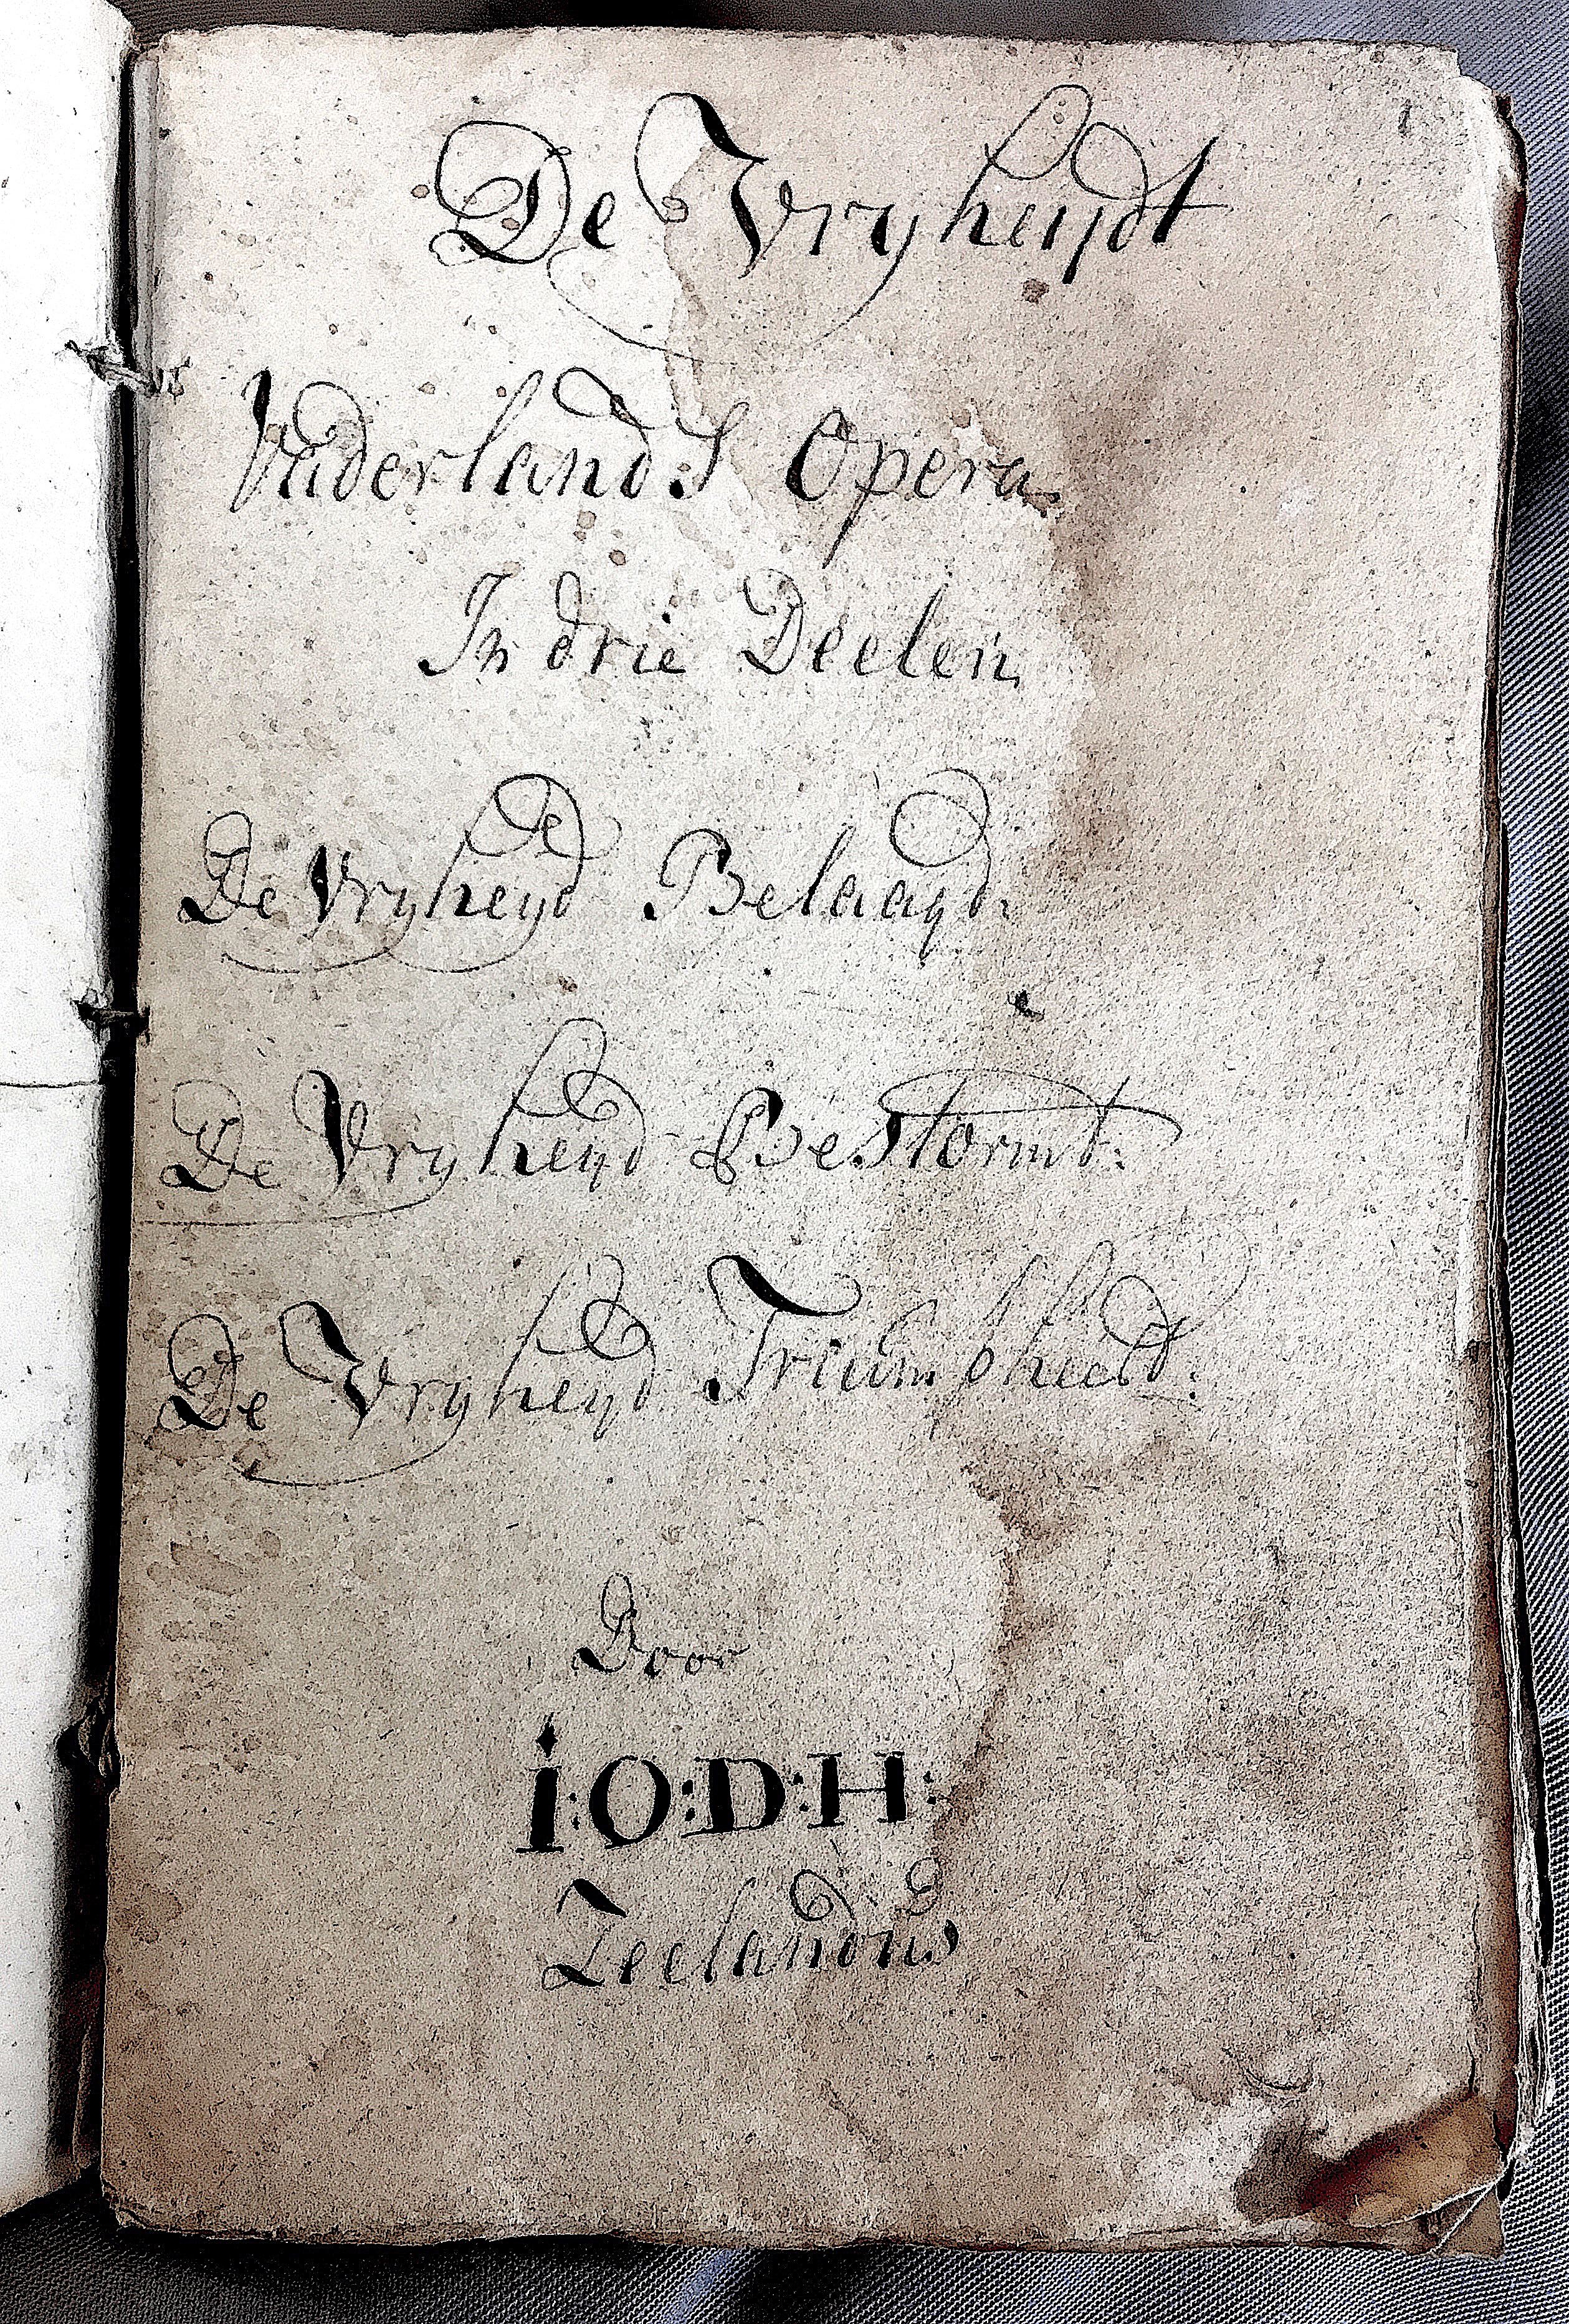 De Vryheijdt
Vaderlands Opera.
In drie Deelen,
De Vryheyd Belaagd:
De Vryheyd Bestormt:
De Vryheyd Triumpheerd:
Door
i:O:D:H:
Zeelandus